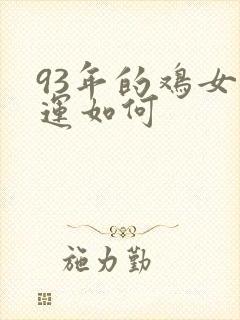 93年的鸡女
运如何
施力勤